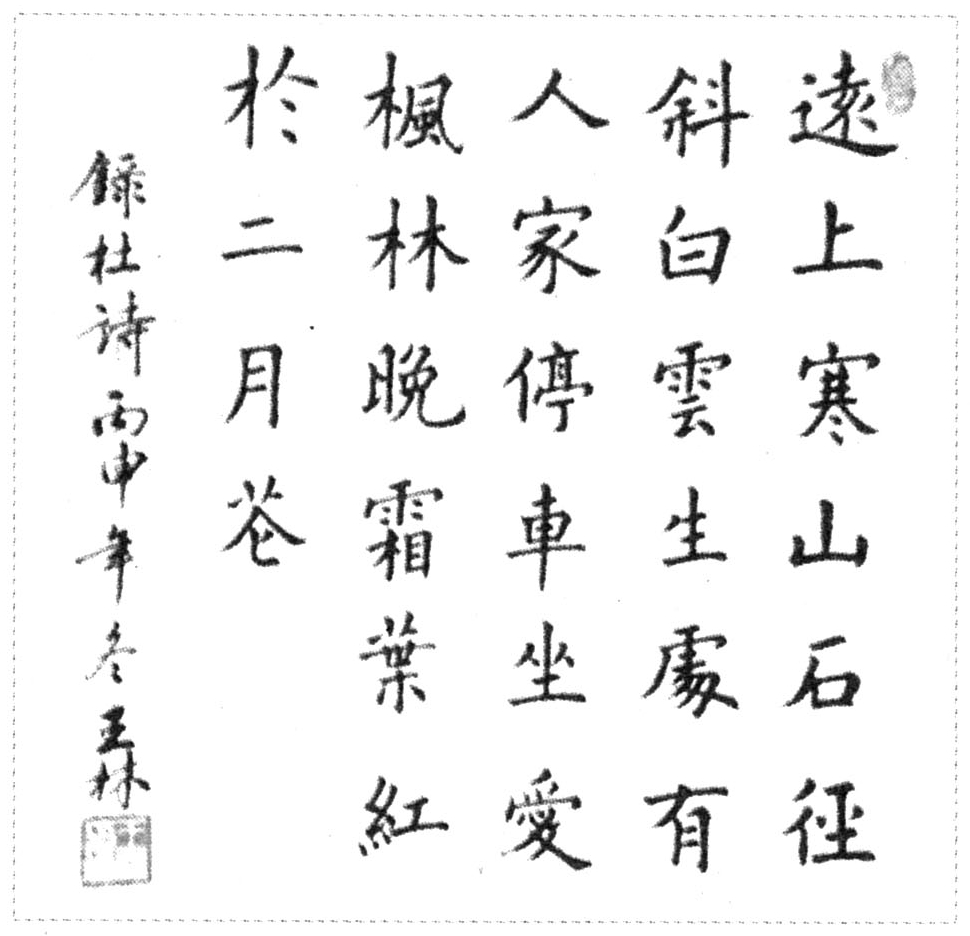 遠上寒山石徑
斜白雲生處有
人家停車坐愛
楓林晚霜葉紅
於二月苍
錄杜詩丙申年冬王林